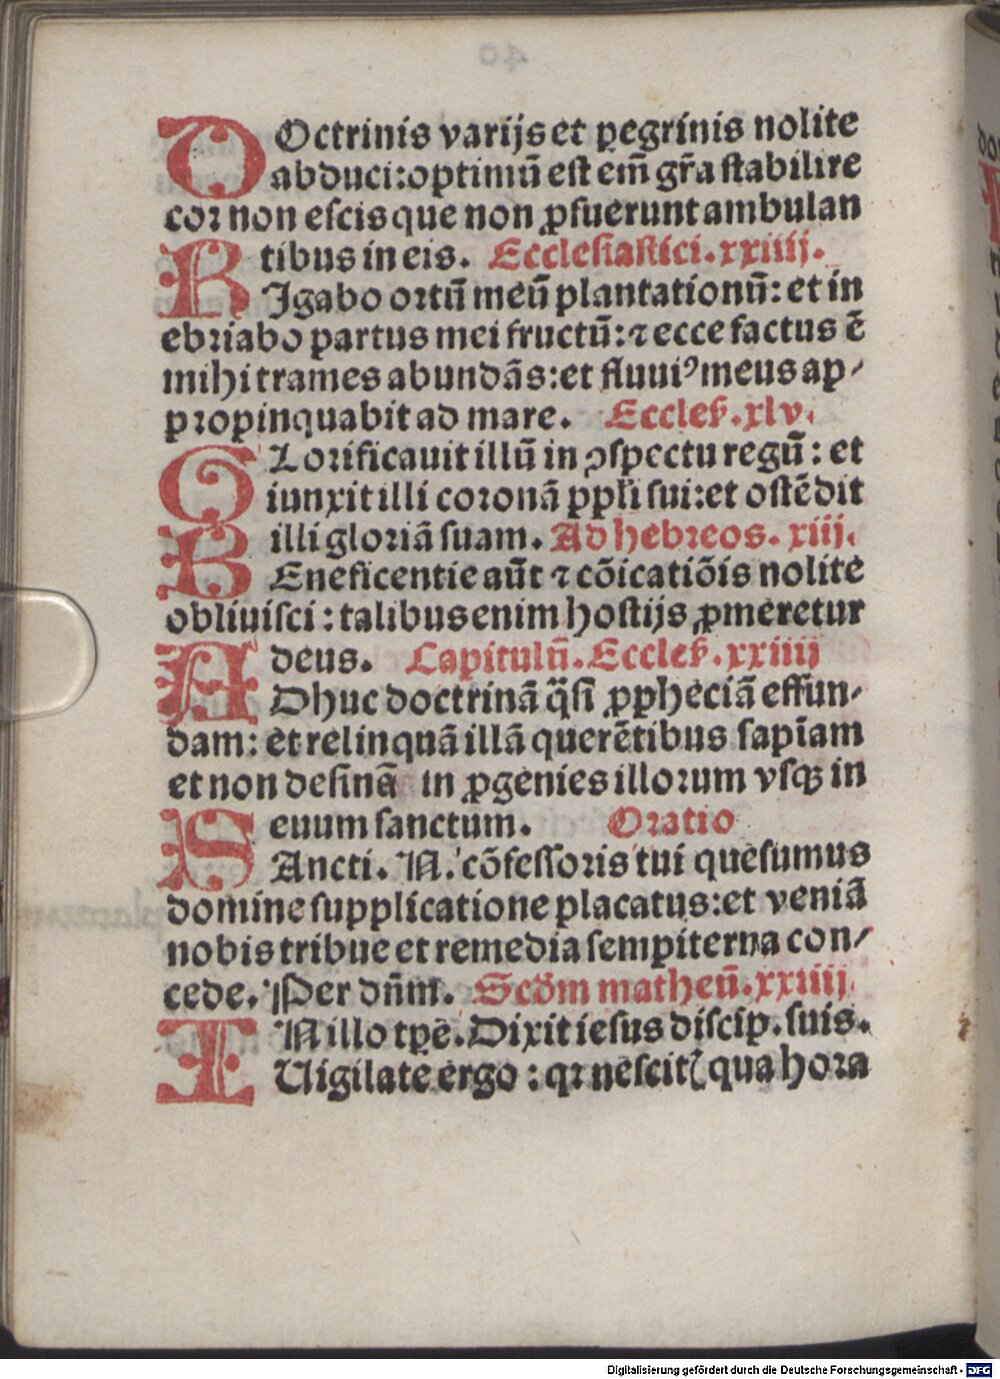 DOctrinis varijs et ꝑegrinis nolite
abduci: optimū est em̄ gr̄a stabilire
cor non escis que non ꝓfuerunt ambulan
tibus in eis. Ecclesiastici. xxiiij.
RIgabo ortū meū plantationū: et in
ebriabo partus mei fructū: ⁊ ecce factus ē
mihi trames abundās: et fluuiꝰ meus ap-
propinquabit ad mare. Eccleẜ. xlv.
GLorificauit illū in ꝯspectu regū: et
iunxit illi coronā ppl̄i sui: et ostēdit
illi gloriā suam. Ad hebreos. xiij.
BEneficentie aūt ⁊ cōicatiōis nolite
obliuisci: talibus enim hostijs ꝓmeretur
deus. Capitulū. Eccleẜ. xxiiij
ADhuc doctrinā q̄si ꝓpheciā effun-
dam: et relinquā illā querētibus sapīam
et non desinā in ꝓgenies illorum vsqꝫ in
euum sanctum. Oratio
SAncti. N. cōfessoris tui quesumus
domine supplicatione placatus: et veniā
nobis tribue et remedia sempiterna con-
cede. Per dn̄m. Scd̄m matheū. xxiiij
IN illo tꝑe. Dixit iesus discip. suis.
Uigilate ergo: qꝛ nescitꝭ qua hora
40
Digitalisierung gefördert durch die Deutsche Forschungsgemeinschaft - DFG